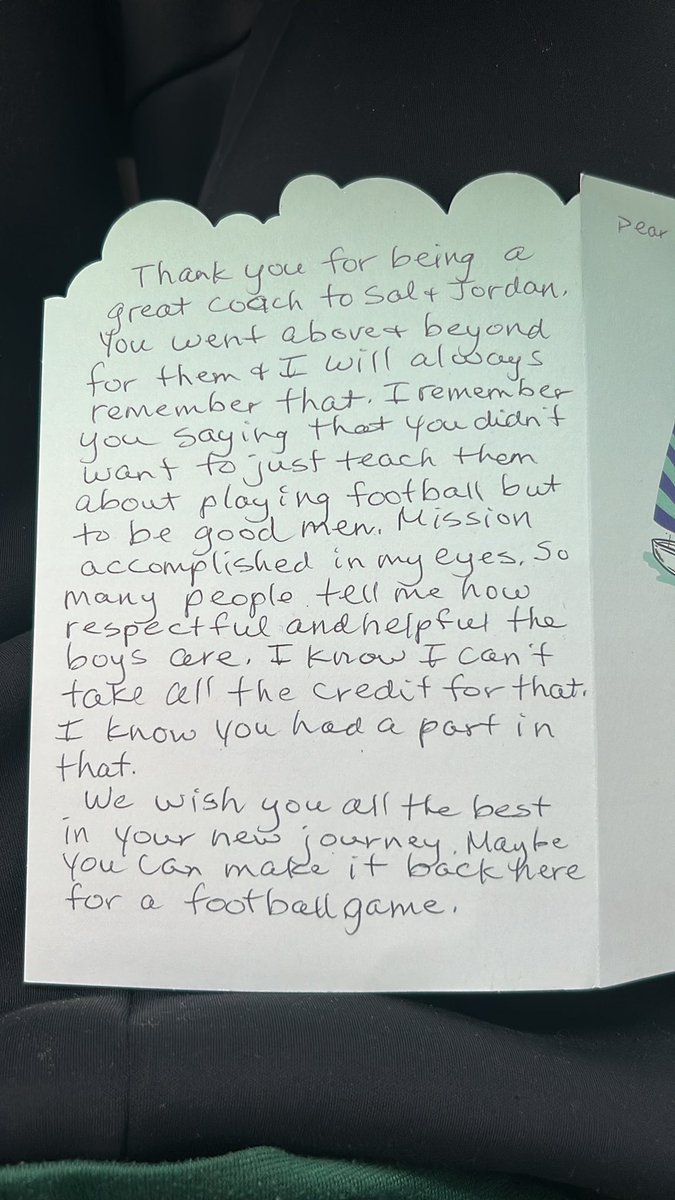 Thank you for being a
great coach to Sal & Jordan.
You went above & beyond
for them & I will always
remember that. I remember
you saying that you didn't
want to just teach them
about playing football but
to be good men. Mission
accomplished in my eyes. So
many people tell me how
respectful and helpful the
boys are. I know I can't
take all the credit for that.
I know you had a part in
that.
We wish you all the best
in your new journey. Maybe
you can make it back here
for a football game.
Dear